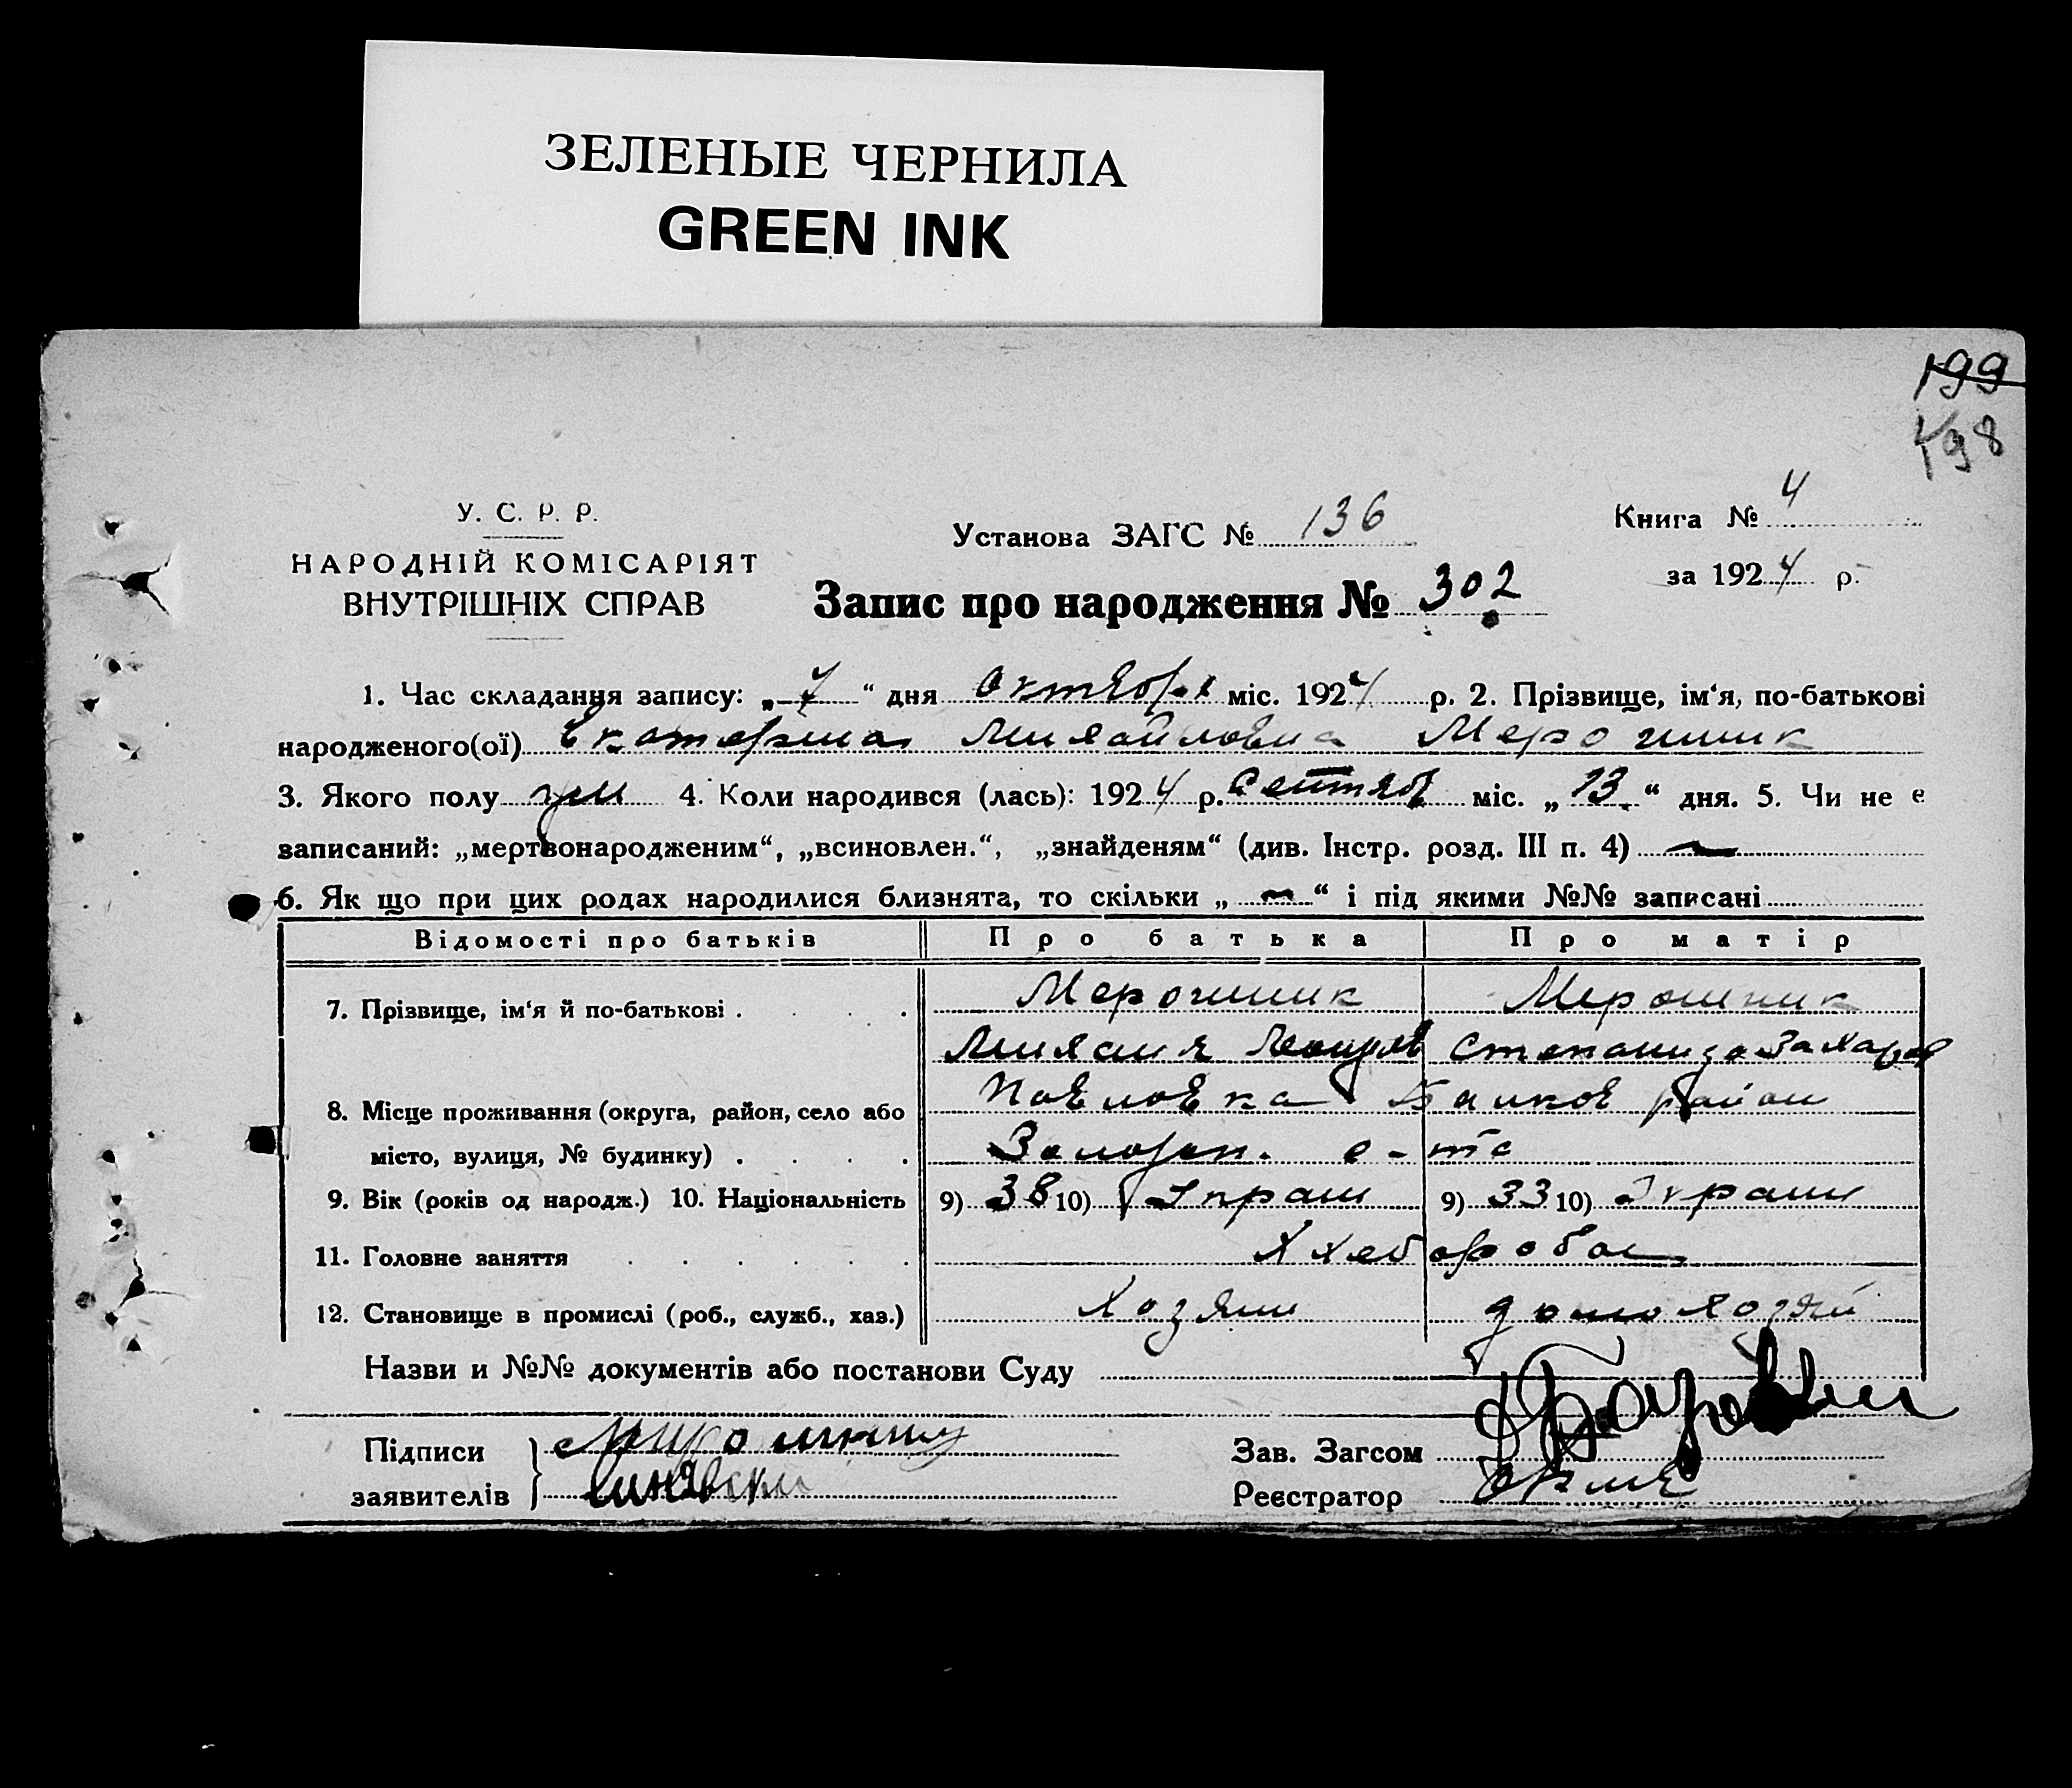 ЗЕЛЕНЫЕ ЧЕРНИЛА
GREEN INK
199
198
У. С. Р. Р.
НАРОДНІЙ КОМІСАРІЯТ
ВНУТРІШНІХ СПРАВ
Установа ЗАГС № 136
Книга № 4
за 1924 р.
Запис про народження № 302
1. Час складання запису: „7“ дня Октября міс. 1924 р. 2. Прізвище, ім‘я, по-батькові
народженого(ої) Екатерина Михайловна Мерошник
3. Якого полу жен 4. Коли народився (лась): 1924 р. Сентяб міс. „13“ дня. 5. Чи не є
записаний: „мертвонародженим“, „всиновлен.“, „знайденям“ (див. Інстр. розд. III п. 4) —
6. Як що при цих родах народилися близнята, то скільки „—“ і під якими №№ записані
Відомості про батьків Про батька Про матір
7. Прізвище, ім‘я й по-батькові Мерошник Мерошник
Михаил Степанида Захаров
8. Місце проживання (округа, район, село або Павловка район
місто, вулиця, № будинку) о-та
9. Вік (років од народж.) 10. Національність 9) 38 10) Украин 9) 33 10) Украин
11. Головне заняття Хлебороб
12. Становище в промислі (роб., служб., хаз.) Хозяин домохозяй
Назви и №№ документів або постанови Суду
Підписи
заявителів
Зав. Загсом
Реєстратор